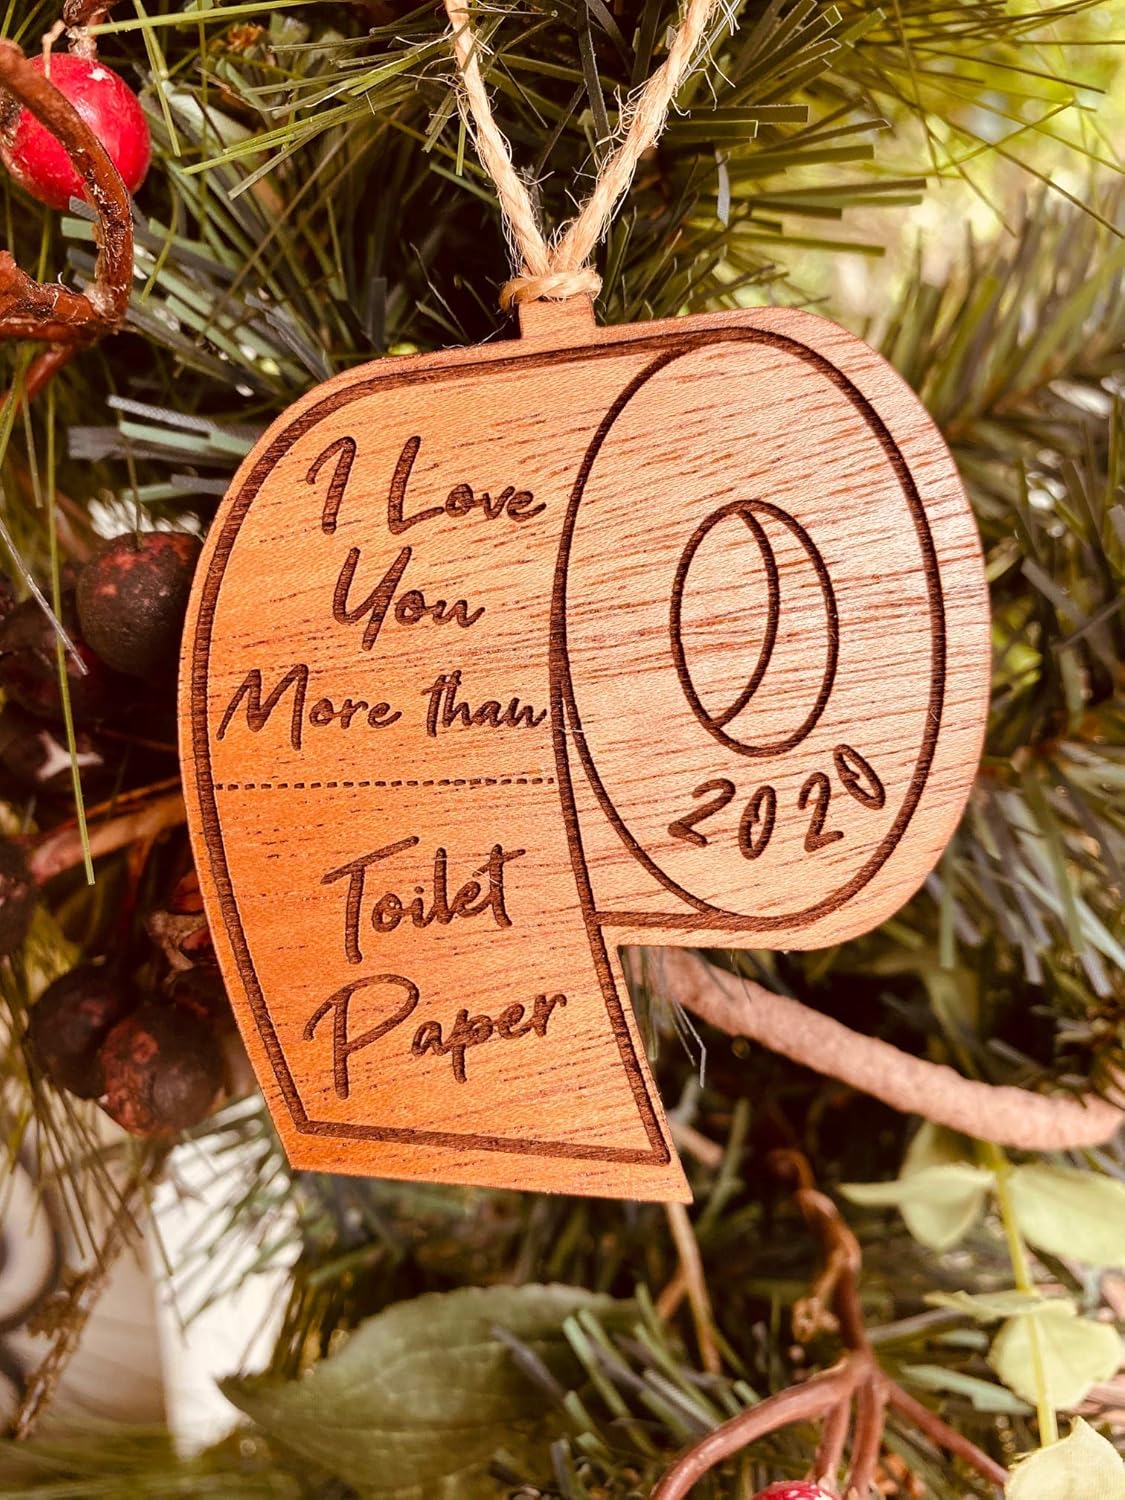 I Love
You
More than
Toilet
Paper
2020